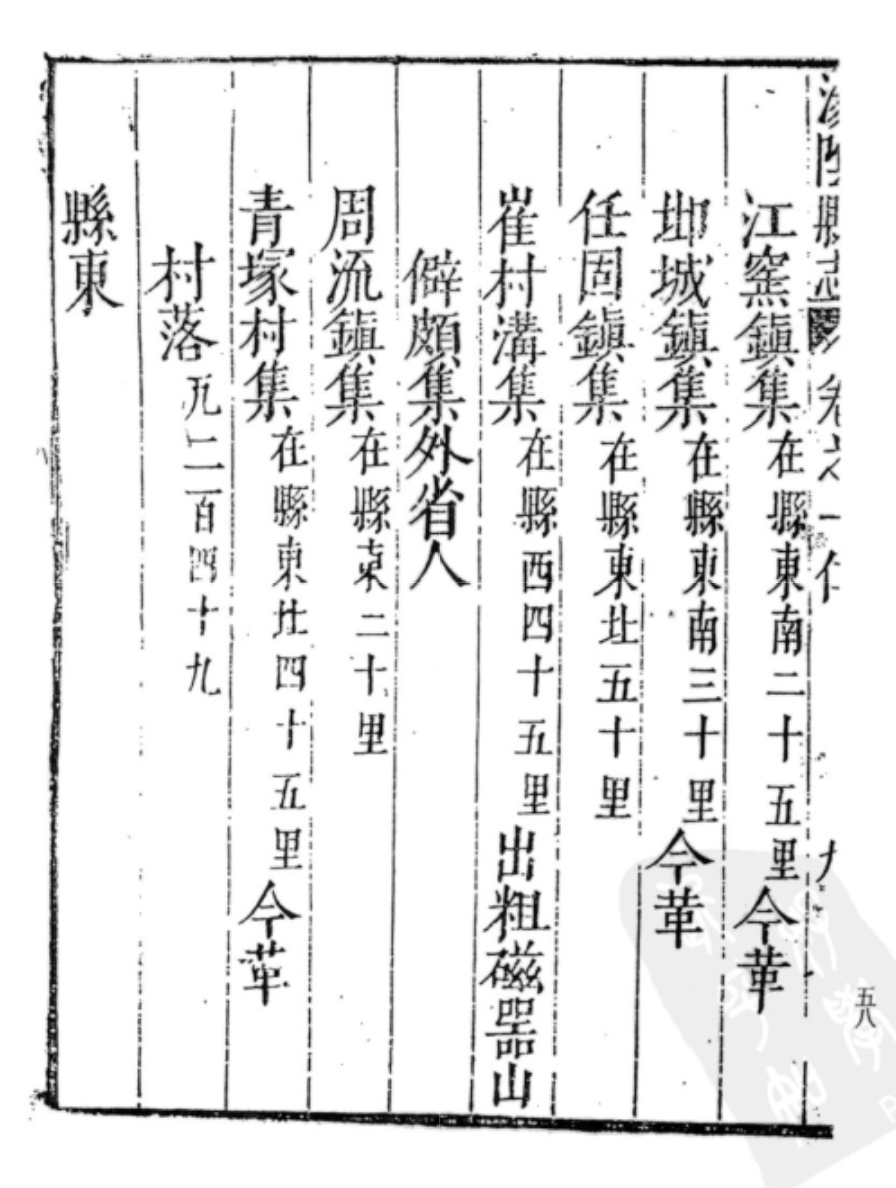 縣志
卷之一
江窑鎮集在縣東南二十五里今革
𨛦城鎮集在縣東南三十里今革
任固鎮集在縣東北五十里
崔村溝集在縣西四十五里出粗磁器山
僻頗集外省人
周流鎮集在縣東二十里
青塚村集在縣東北四十五里今革
村落凡二百四十九
縣東
五八